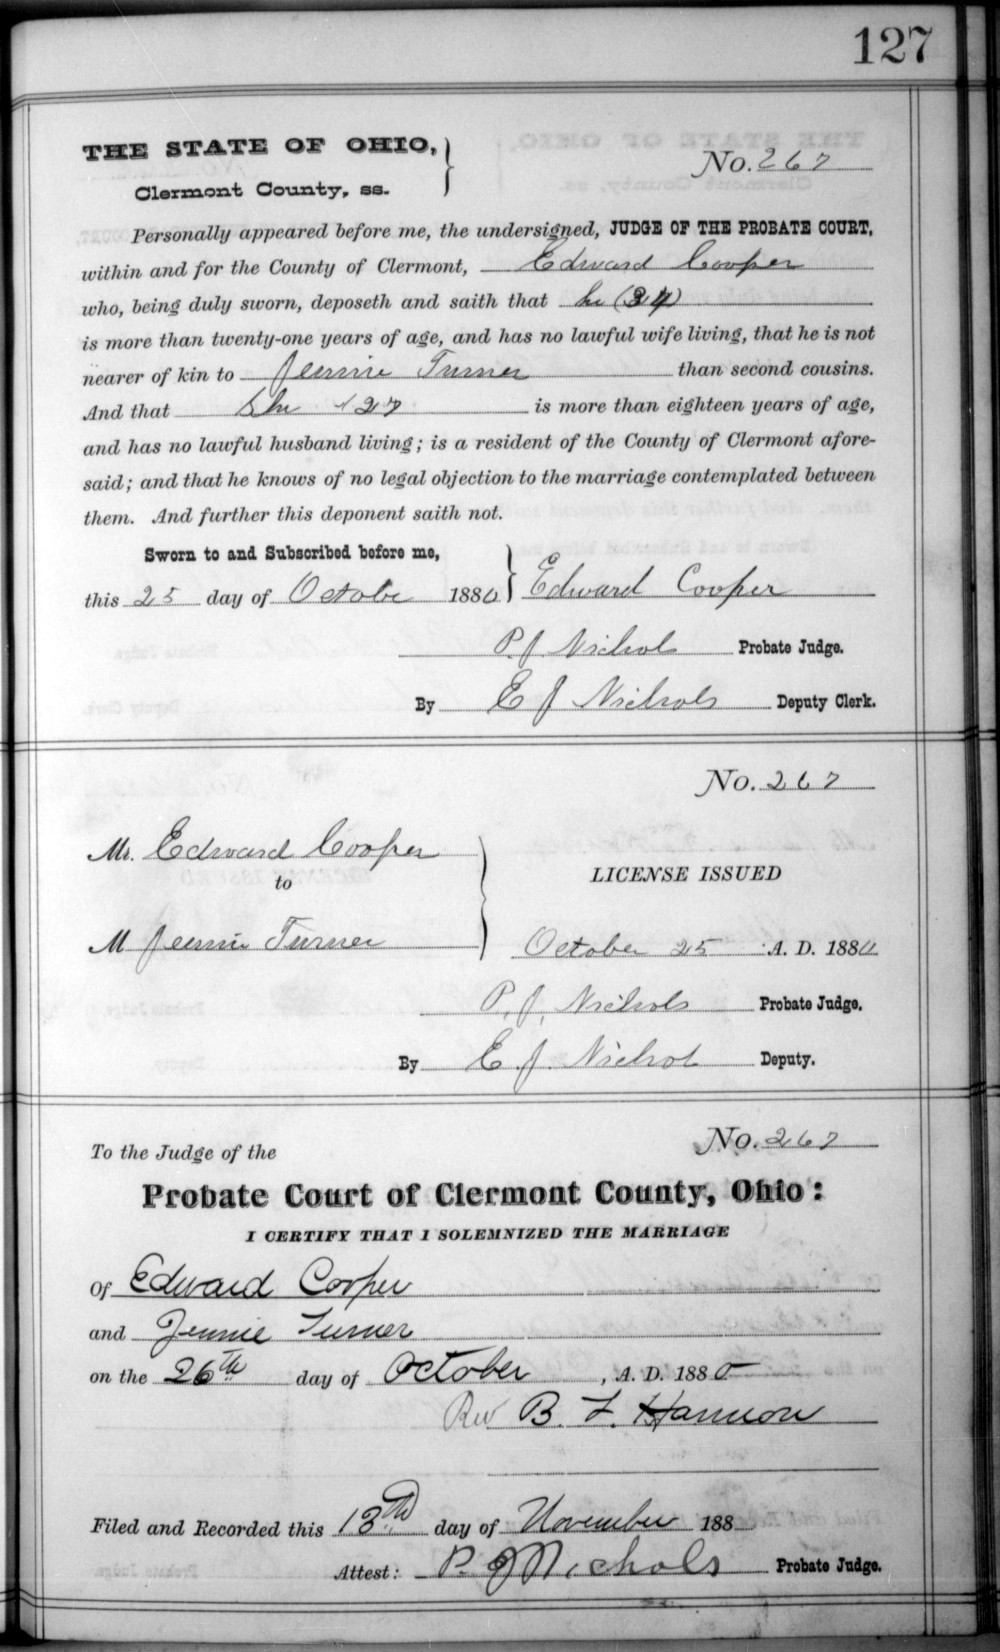 127
THE STATE OF OHIO,
Clermont County, ss.
No. 267
Personally appeared before me, the undersigned, JUDGE OF THE PROBATE COURT,
within and for the County of Clermont, Edward Cooper
who, being duly sworn, deposeth and saith that he (34)
is more than twenty-one years of age, and has no lawful wife living, that he is not
nearer of kin to Jennie Turner than second cousins.
And that She 27 is more than eighteen years of age,
and has no lawful husband living; is a resident of the County of Clermont afore-
said; and that he knows of no legal objection to the marriage contemplated between
them. And further this deponent saith not.
Sworn to and Subscribed before me,
this 25 day of Octobe 1880 Edward Cooper
P. J. Nichols Probate Judge.
By E J Nichols Deputy Clerk.
No. 267
Mr. Edward Cooper
to
LICENSE ISSUED
M Jennie Turner
October 25 A. D. 1880
P. J. Nichols Probate Judge.
By E. J. Nichol Deputy.
No. 267
To the Judge of the
Probate Court of Clermont County, Ohio:
I CERTIFY THAT I SOLEMNIZED THE MARRIAGE
Of Edward Cooper
and Jennie Turner
on the 26th day of October, A. D. 1880
Rev B. F. Hannon
Filed and Recorded this 13th day of November 188
Attest: P. J Nichols Probate Judge.